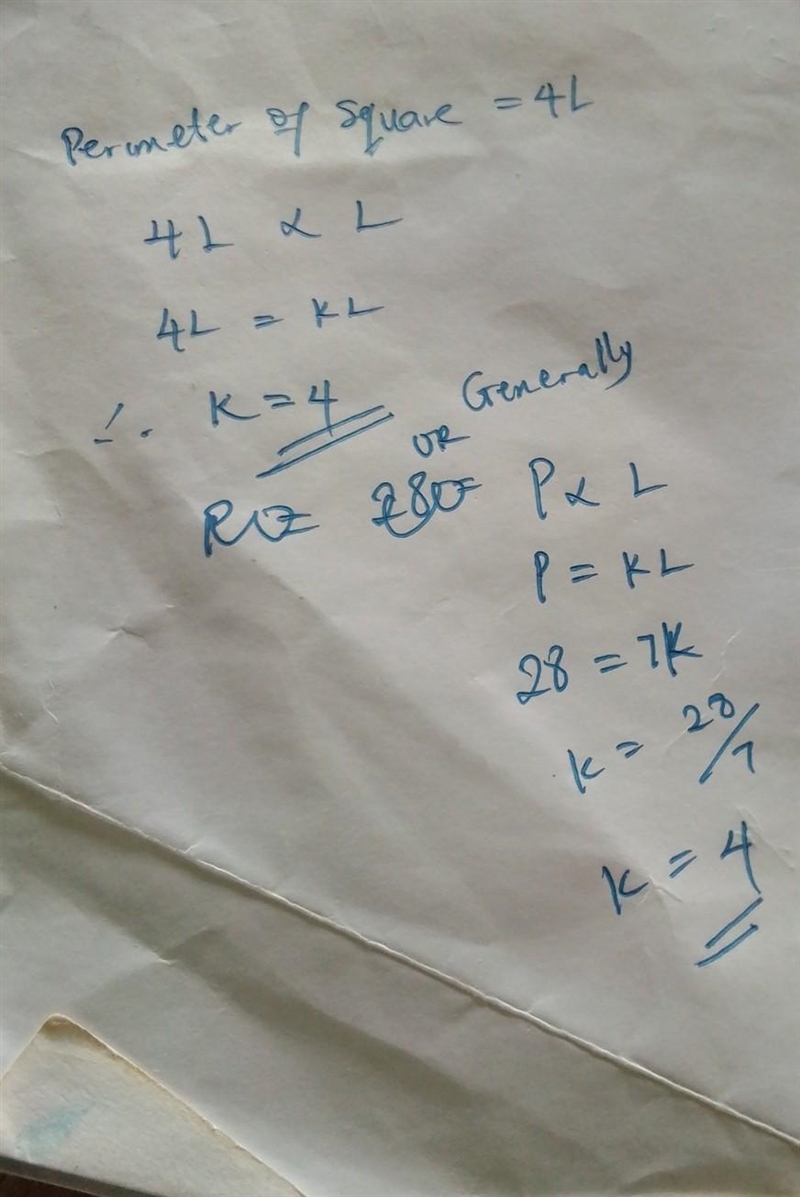 Perimeter of square = 4L
4L ∝ L
4L = KL
∴ K = 4
OR Generally
P ∝ L
P = KL
28 = 7K
K = 28/7
K = 4